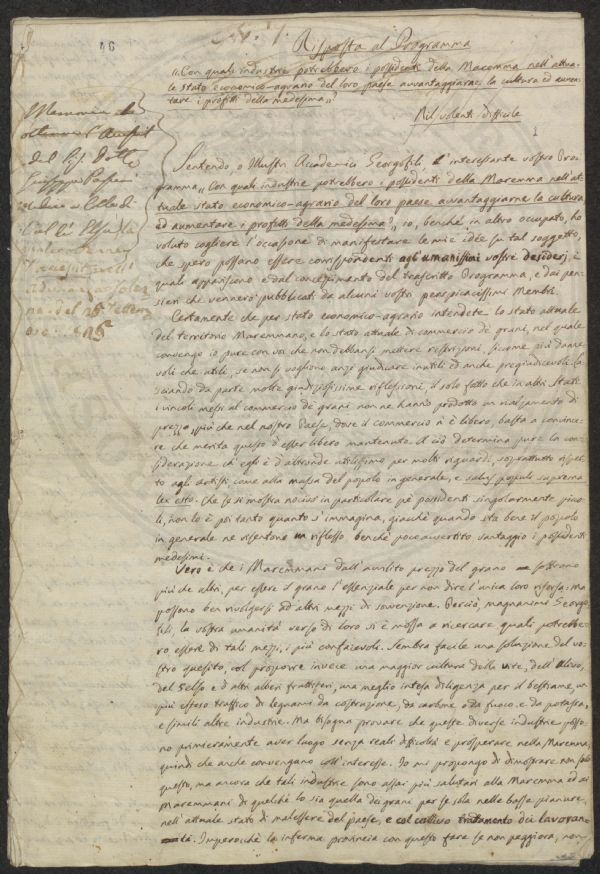 46
N.° 1.
Risposta al Programma
"Con quali industrie potrebbero i possidenti della Maremma nell'attua-
le stato economico-agrario del loro paese avvantaggiarne la cultura ed aumen-
tare i profitti della medesima"?
Nil volenti difficile
1
Memoria
del Sig. Dott.
Giuseppe
medico a Colle di
Val d'Elsa
Sentendo, o Illustri Accademici Georgofili l'interessante vostro Pro-
gramma "Con quali industrie potrebbero i possidenti della Maremma nell'at-
tuale stato economico-agrario del loro paese avvantaggiarne la cultura
ed aumentare i profitti della medesima"? io, benchè in altro occupato, ho
voluto cogliere l'occasione di manifestare le mie idee su tal soggetto,
che spero possano essere corrispondenti agli umanissimi vostri desiderj, i
quali appariscono e dal concepimento del trascritto Programma, e dai pen-
sieri che vennero pubblicati da alcuni vostri perspicacissimi Membri.
Certamente che per stato economico-agrario intendete lo stato attuale
del territorio Maremmano, e lo stato attuale di commercio de' grani, nel quale
convengo io pure con voi che non debbansi mettere restrizioni, siccome più danne-
voli che utili, se non si vogliono anzi giudicare inutili ed anche pregiudicevoli. La-
sciando da parte molte giudiziosissime riflessioni, il solo fatto che in altri Stati
i vincoli messi al commercio de' grani non ne hanno prodotto un rialzamento di
prezzo più che nel nostro Paese, dove il commercio n'è libero, basta a convince-
re che merita questo d'esser libero mantenuto. A ciò determina pure la con-
siderazione ch'egli è d'altronde utilissimo per molti riguardi, soprattutto rispet-
to agli artisti come alla massa del popolo in generale, e salus populi suprema
lex esto. Che se si mostra nocivo in particolare pe' possidenti singolarmente picco-
li, non lo è poi tanto quanto s'immagina, giacchè quando sta bene il popolo
in generale ne risentono un riflesso benchè poco avvertito vantaggio i possidenti
medesimi.
Vero è che i Maremmani dall'avvilito prezzo del grano soffrano
più che altri, per essere il grano l'essenziale per non dire l'unica loro risorsa: ma
possono ben rivolgersi ad altri mezzi di sovvenzione. Perciò, magnanimi Georgo-
fili, la vostra umanità verso di loro si è mossa a ricercare quali potrebbe-
ro essere di tali mezzi, i più confacevoli. Sembra facile una soluzione del vo-
stro quesito, col proporre invece una maggior cultura della vite, dell'olivo,
del Gelso e d'altri alberi fruttiferi, una meglio intesa diligenza per il bestiame, un
più esteso traffico di legnami da costruzione, da carbone e da fuoco, e da potassa,
e simili altre industrie. Ma bisogna provare che queste diverse industrie posso-
no primieramente aver luogo senza reali difficoltà e prosperare nella Maremma,
quindi che anche convengano coll'interesse. Io mi propongo di dimostrare non solo
questo, ma ancora che tali industrie sono assai più salutari alla Maremma ed ai
Maremmani di quelchè lo sia quella dei grani per se sola nelle basse pianure,
nell'attuale stato di malessere del paese, e col cattivo trattamento dei lavoran-
ti. Imperocchè la inferma provincia con questo fare se non peggiora, non